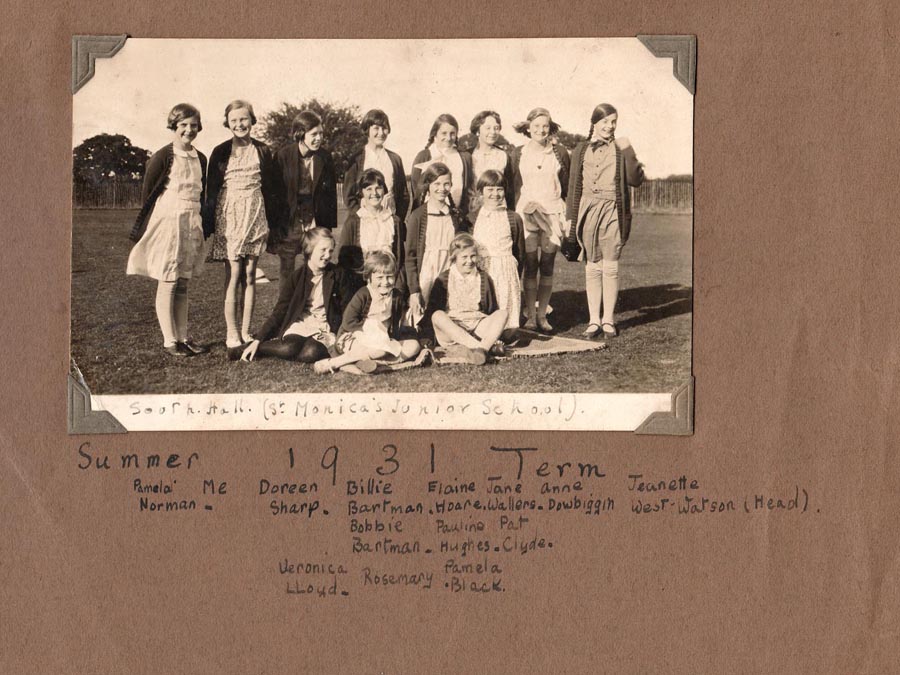 South. Hall. (St Monica's Junior School).
Summer 1931 Term
Pamela Me Doreen Billie Elaine Jane Anne Jeanette
Norman - Sharp. Bartman. Hoare. Wallers. Dowbiggin West-Watson (Head).
Bobbie Pauline Pat
Bartman - Hughes - Clyde.
Veronica Rosemary Pamela
Lloyd. Black.